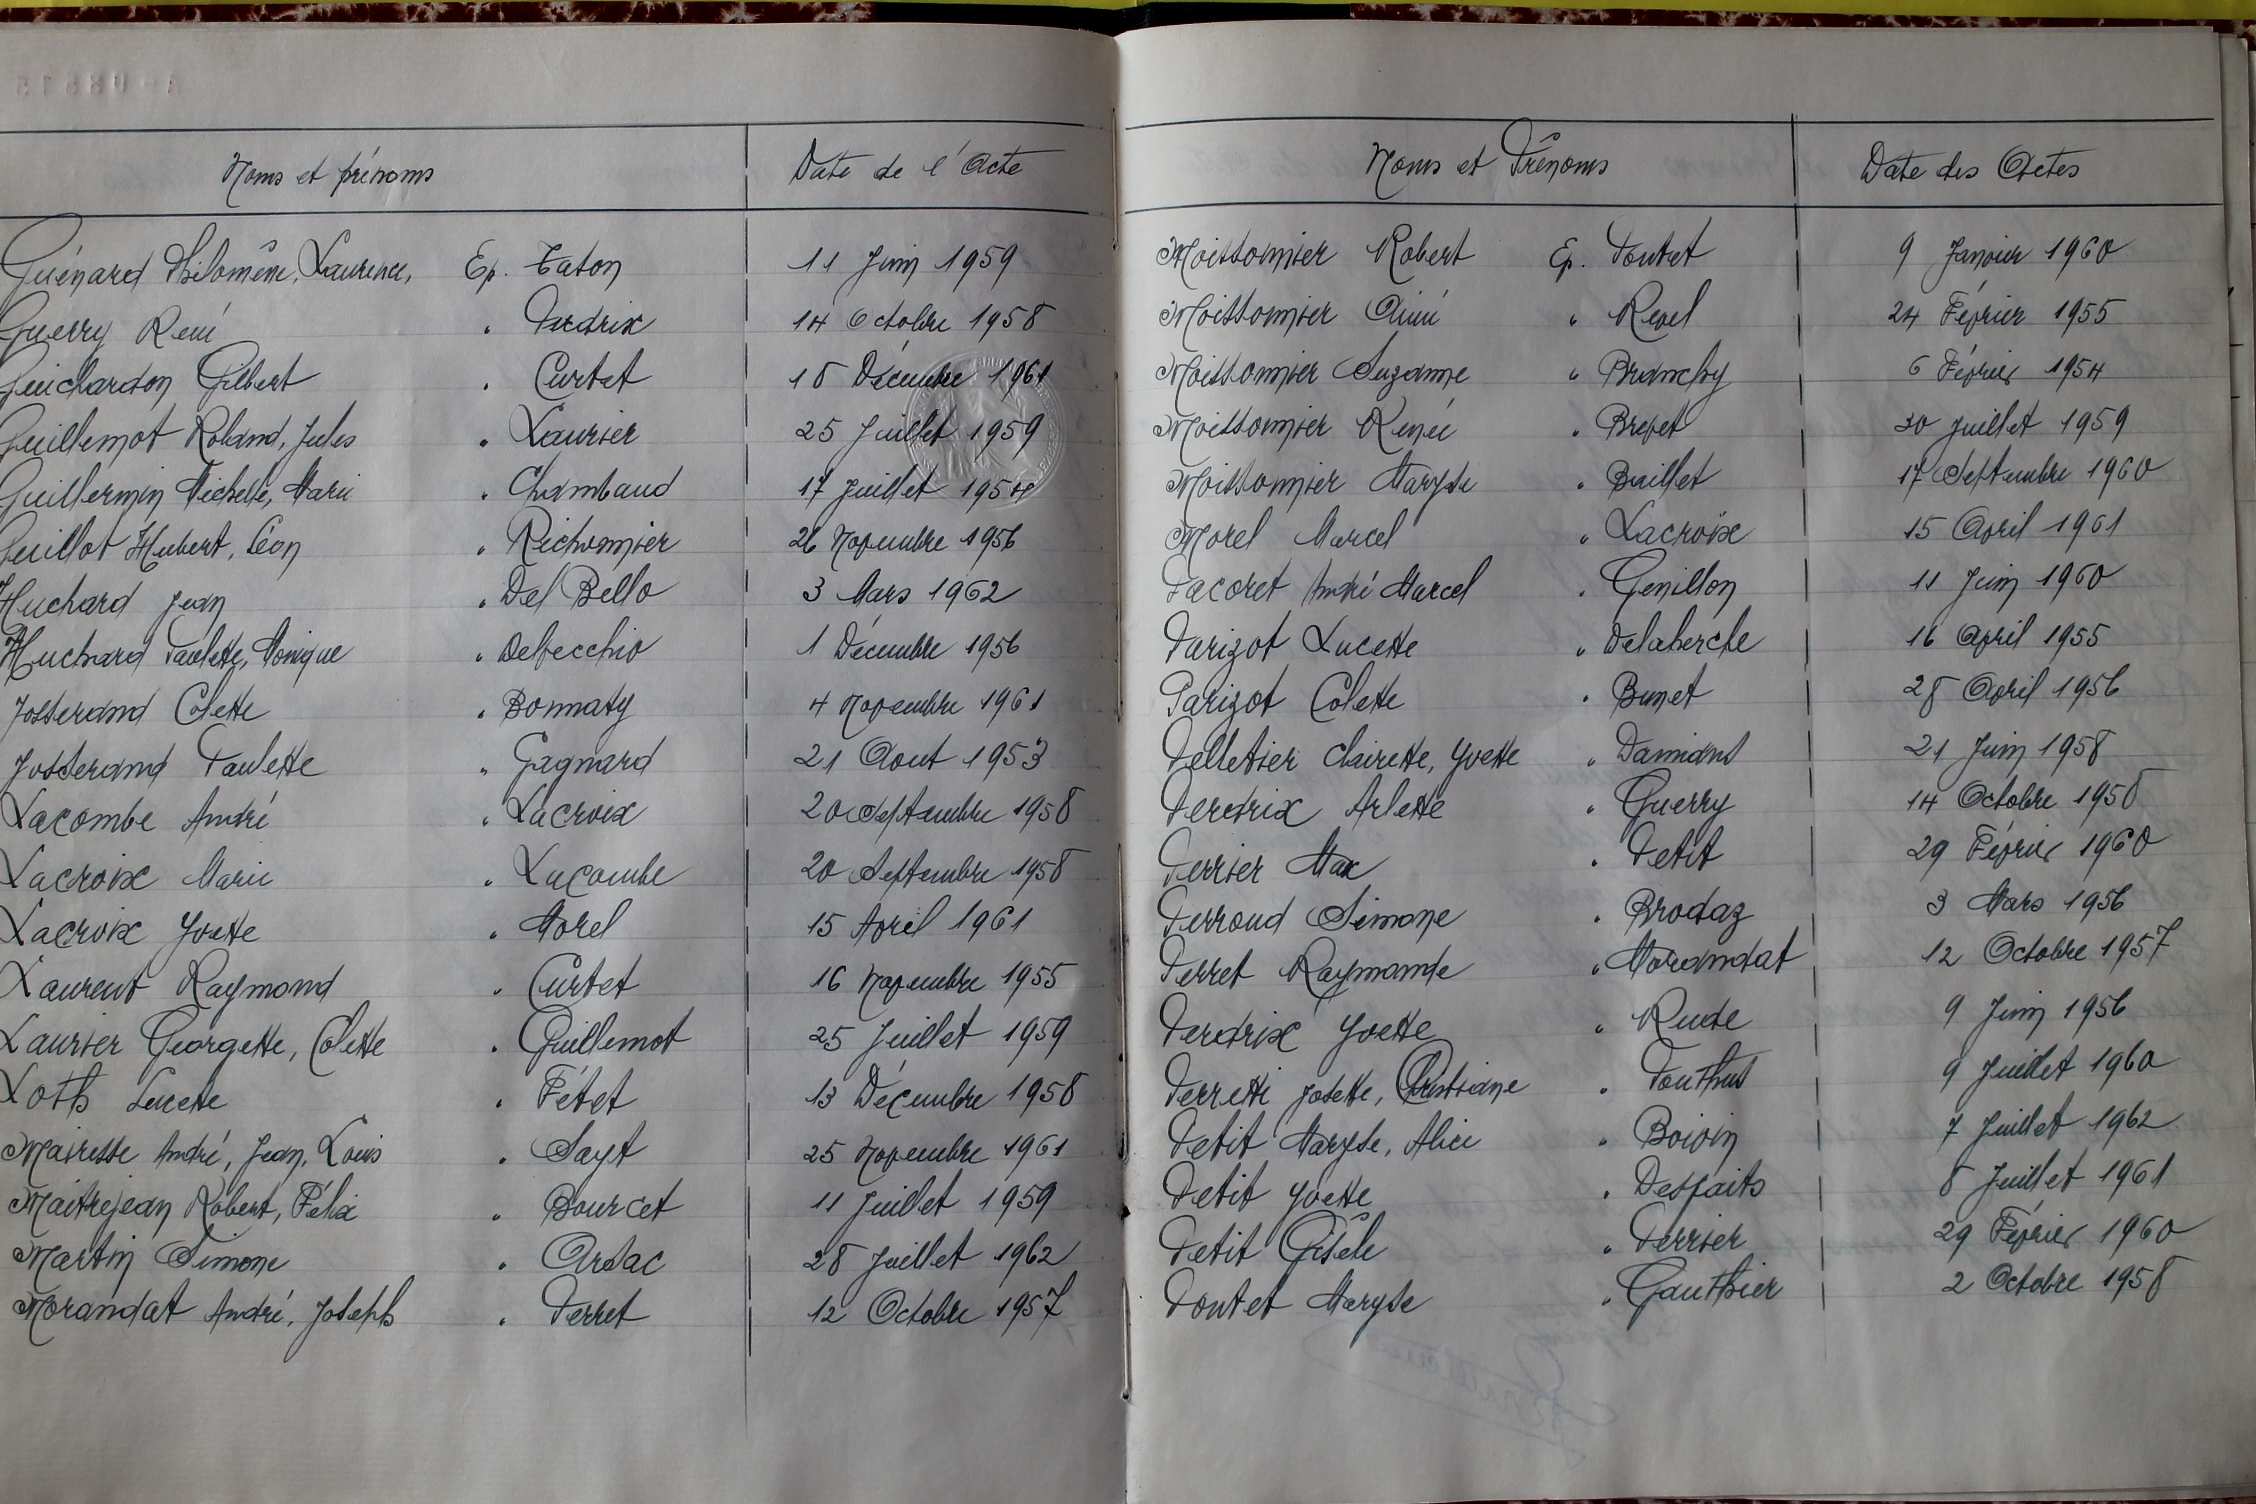 Noms et prénoms Date de l'Acte
Guénard Philomène, Laurence, Ep. Taton 11 Juin 1959
Guerry René " Perdrix 14 Octobre 1958
Guichardon Gilbert " Curtet 18 Décembre 1961
Guillemot Roland, Jules " Laurier 25 Juillet 1959
Guillermin Michelle, Marie " Chambaud 17 Juillet 1954
Guillot Hubert, Léon " Richonnier 26 Novembre 1956
Huchard Jean " Del Bello 3 Mars 1962
Huchard Paulette, Monique " Delvecchio 1 Décembre 1956
Josserand Colette " Bonnaty 4 Novembre 1961
Josserand Paulette " Gagnard 21 Aout 1953
Lacombe André " Lacroix 20 Septembre 1958
Lacroix Marie " Lacombe 20 Septembre 1958
Lacroix Yvette " Morel 15 Avril 1961
Laurent Raymond " Curtet 16 Novembre 1955
Laurier Georgette, Colette " Guillemot 25 Juillet 1959
Loth Lucette " Fétet 13 Décembre 1958
Mairesse André, Jean, Louis " Sayt 25 Novembre 1961
Maitrejean Robert, Félix " Bourcet 11 Juillet 1959
Martin Simone " Arsac 28 Juillet 1962
Morandat André, Joseph " Perret 12 Octobre 1957
Noms et Prénoms Date des Actes
Moissonnier Robert Ep. Poutet 9 Janvier 1960
Moissonnier Aimé " Revel 24 Février 1955
Moissonnier Suzanne " Branchy 6 Février 1954
Moissonnier Renée " Brevet 30 Juillet 1959
Moissonnier Maryse " Buillet 17 Septembre 1960
Morel Marcel " Lacroix 15 Avril 1961
Pacoret André Marcel " Genillon 11 Juin 1960
Parizot Lucette " Delaherche 16 Avril 1955
Parizot Colette " Bunet 28 Avril 1956
Pelletier Clairette, Yvette " Damians 21 Juin 1958
Perdrix Arlette " Guerry 14 Octobre 1958
Perrier Max " Petit 29 Février 1960
Perroud Simone " Brodaz 3 Mars 1956
Perret Raymonde " Morandat 12 Octobre 1957
Perdrix Yvette " Rude 9 Juin 1956
Perretti Josette, Christiane " Pouthus 9 Juillet 1960
Petit Maryse, Alice " Boivin 7 Juillet 1962
Petit Yvette " Desfaits 8 Juillet 1961
Petit Gisèle " Perrier 29 Février 1960
Poutet Maryse " Gauthier 2 Octobre 1958